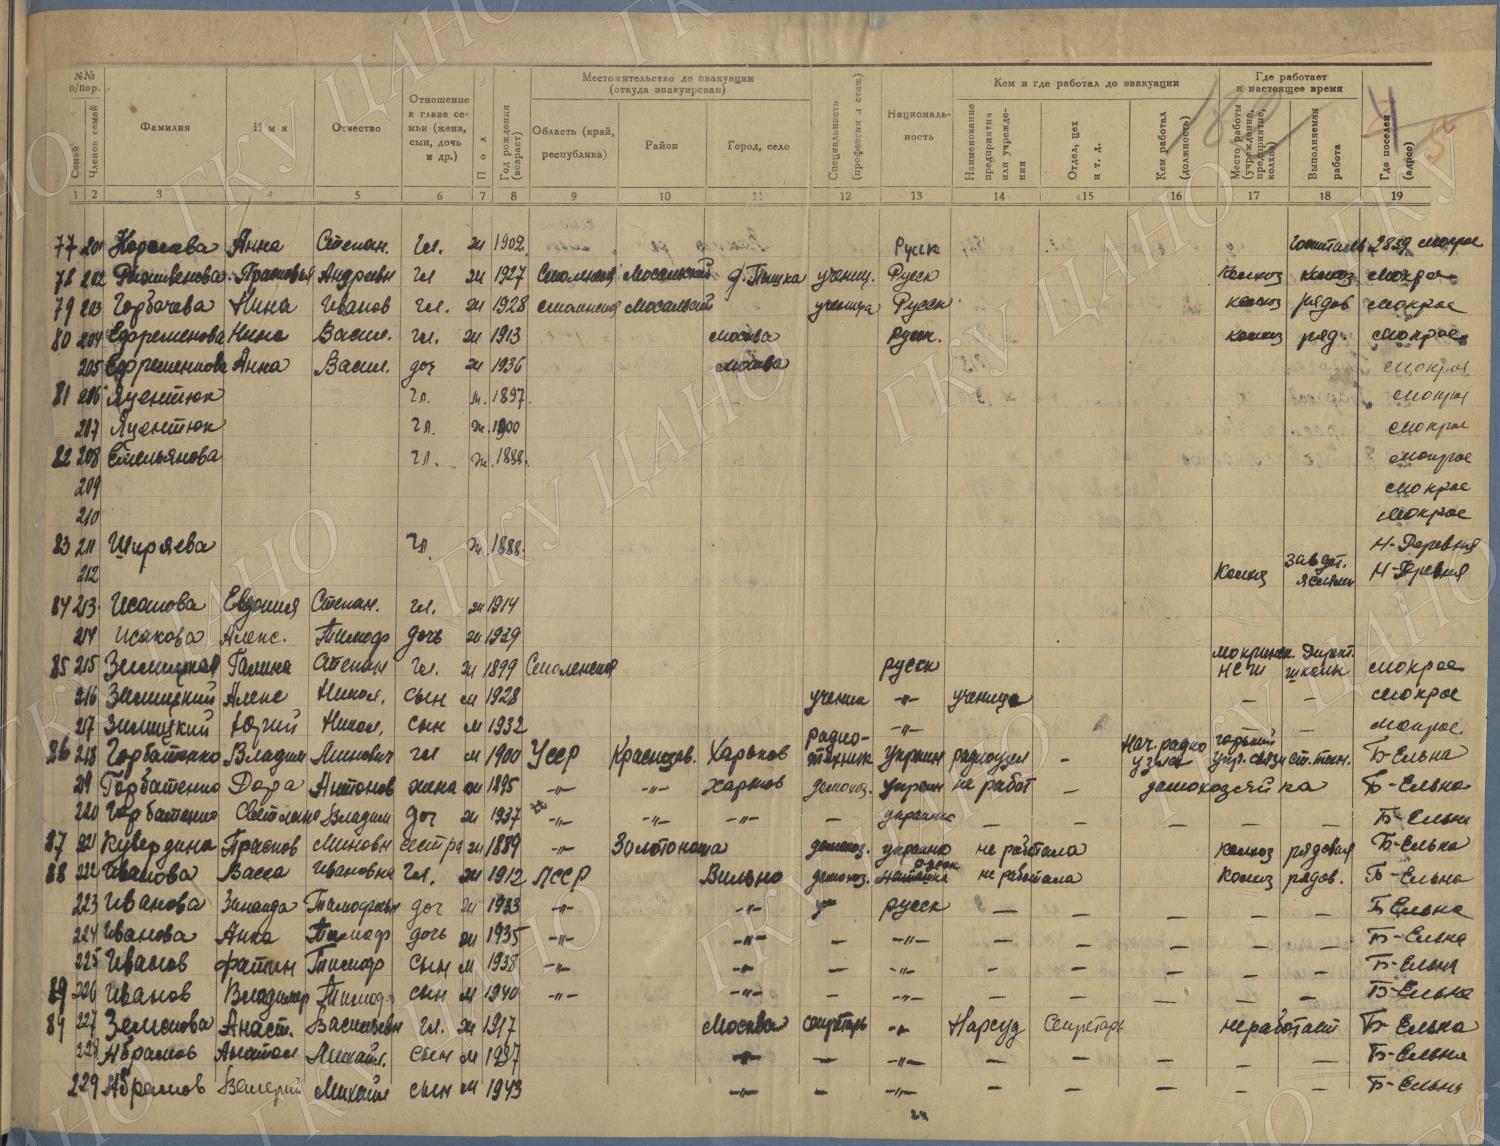 №№ п/пор.
Семей
Членов семей
Фамилия
Имя
Отчество
Отношение к главе семьи (жена, сын, дочь и др.)
Пол
Год рождения (возраст)
Местожительство до эвакуации (откуда эвакуирован)
Область (край, республика)
Район
Город, село
Специальность (профессия и стаж)
Националь-ность
Кем и где работал до эвакуации
Наименование предприятия или учреждения
Отдел, цех и т. д.
Кем работал (должность)
Где работает в настоящее время
Место работы (учреждение, предприятие, колхоз)
Выполняемая работа
Где поселен (адрес)
1 2 3 4 5 6 7 8 9 10 11 12 13 14 15 16 17 18 19
77 201 Анна Степан. гл. ж 1902 Русск 2839 Мокрое
78 202 Прасковья Андреевн гл ж 1927 Смоленск Мосальский учениц. Русск колхоз колхоз Мокрое
79 203 Горбачева Нина Иванов гл. ж 1928 Смоленск Мосальский ученица Русск колхоз рядов Мокрое
80 204 Ефременова Нина Васил. гл. ж 1913 Москва Русск. колхоз ряд. Мокрое
205 Ефременкова Анна Васил. доч ж 1936 Москва Мокрое
81 206 Яцентюк гл. м. 1897 Мокрое
207 Яцентюк гл. ж. 1900 Мокрое
82 208 Емельянова гл. ж. 1888 Мокрое
209 Мокрое
210 Мокрое
83 211 Ширяева гл. ж. 1888 Н-Деревня
212 колхоз зав дет. яслями Н-Деревня
84 213 Исакова Евдокия Степан. гл. ж 1914
214 Исакова Алекс. Тимоф дочь ж 1939
85 215 Зимицкая Галина Степан гл. ж 1899 Смоленская русск Мокринск. НСШ Директ. школы Мокрое
216 Зимицкий Алекс Никол. сын м 1928 ученик -"- ученица — — Мокрое
217 Зимицкий Юрий Никол. сын м 1932 -"- Мокрое
86 218 Горбатенко Владим гл м 1900 УССР Краснозав. Харьков радио-техник украин радиоузел - Нач. радио узла Горький упр. связи ст. техн. Б-Ельна
219 Горбатенко Дора Антонов жена ж 1895 -"- -"- Харьков домохоз. украин не работ — домохозяйка Б-Ельна
220 Горбатенко Светлана Владим доч ж 1937 -"- -"- -"- — украинк — — — — — Б-Ельна
87 221 Кувердина Прасков сестра ж 1889 -"- Золотоноша домохоз. украинк не работала колхоз рядовая Б-Ельна
88 222 Иванова Васса Ивановна гл. ж 1912 ЛССР Вильно домохоз. русск не работала колхоз рядов. Б-Ельна
223 Иванова Зинаида Тимофеевн доч ж 1933 -"- -"- русск — — — — — Б-Ельна
224 Иванова Анна Тимоф дочь ж 1935 -"- -"- — -"- — — — — — Б-Ельна
225 Иванов Тимоф сын м 1938 -"- -"- — -"- — — — — — Б-Ельна
89 226 Иванов Владимер Тимоф сын м 1940 -"- -"- — -"- — — — — — Б-Ельна
89 227 Земскова Анаст. Васильевн гл. ж 1917 Москва секретарь -"- Нарсуд Секретарь — не работает Б-Ельна
228 Абрамов Анатол Михайл. сын м 1937 -"- — -"- — — — — — Б-Ельна
229 Абрамов Валерий Михайл сын м 1943 -"- — -"- — — — — — Б-Ельна
ГКУ ЦАНО